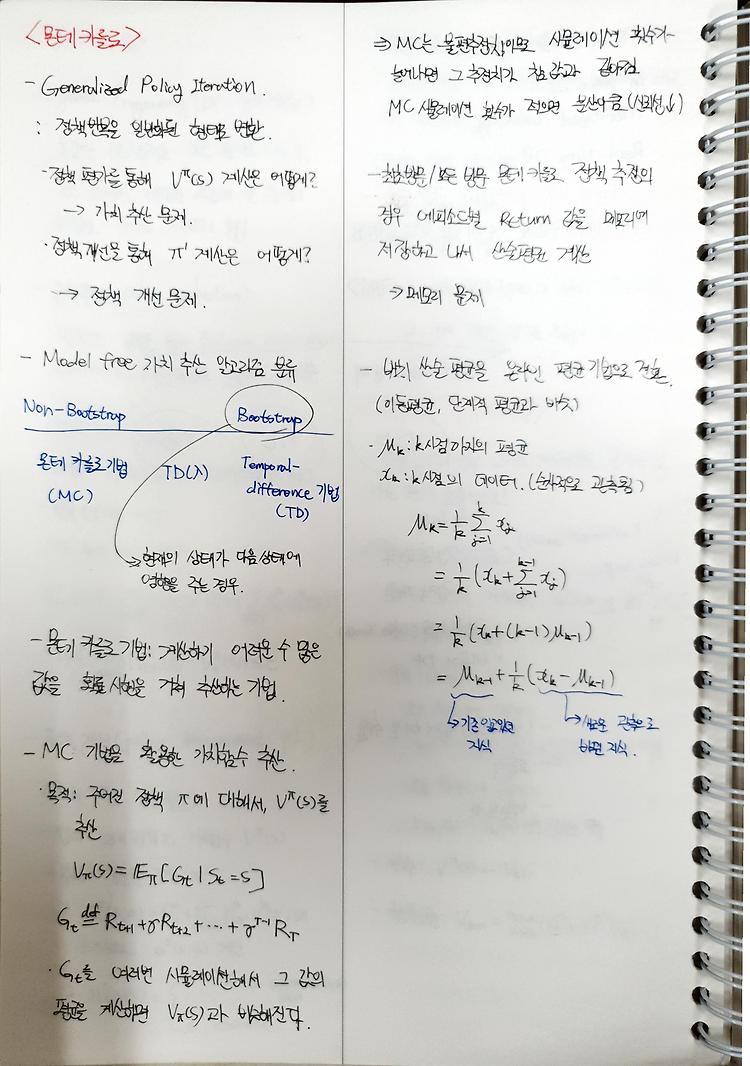 <몬테카를로>
- Generalized Policy Iteration.
: 정책반복을 일반화된 형태로 변환.
· 정책 평가를 통해 V^π(s) 계산은 어떻게?
→ 가치 추산 문제.
· 정책개선을 통해 π' 계산은 어떻게?
→ 정책 개선 문제.
- Model free 가치 추산 알고리즘 분류
Non-Bootstrap Bootstrap
몬테 카를로 기법 TD(λ) Temporal-
(MC) difference 기법
(TD)
→ 현재의 상태가 다음 상태에
영향을 주는 경우.
- 몬테 카를로 기법: 계산하기 어려운 수 많은
값을 확률 시행을 거쳐 추산하는 기법.
- MC 기법을 활용한 가치함수 추산.
· 목적: 주어진 정책 π에 대해서, V^π(s)를
추산
V_π(s) = E_π[G_t | S_t = s]
G_t def= R_{t+1} + γR_{t+2} + ··· + γ^{T-1} R_T
· G_t를 여러번 시뮬레이션해서 그 값의
평균을 계산하면 V_π(s)과 비슷해진다.
⇒ MC는 불편추정치이므로 시뮬레이션 횟수가
늘어나면 그 추정치가 참 값과
MC 시뮬레이션 횟수가 적으면 분산이 큼 (신뢰성↓)
- 최초방문/모든 방문 몬테 카를로 정책 추정의
경우 에피소드별 Return 값을 메모리에
저장하고 나서 산술평균 계산
→ 메모리 문제
- 배치 산술 평균을 온라인 평균 기법으로 전환.
(이동평균, 단계적 평균과 비슷)
· μ_k : k시점까지의 평균
x_k : k시점의 데이터. (순차적으로 관측됨)
μ_k = 1/k Σ_{j=1}^{k} x_j
= 1/k (x_k + Σ_{j=1}^{k-1} x_j)
= 1/k (x_k + (k-1)μ_{k-1})
= μ_{k-1} + 1/k (x_k - μ_{k-1})
→ 기존 알고있던 → 새로운 관측으로
지식 바뀐 지식.